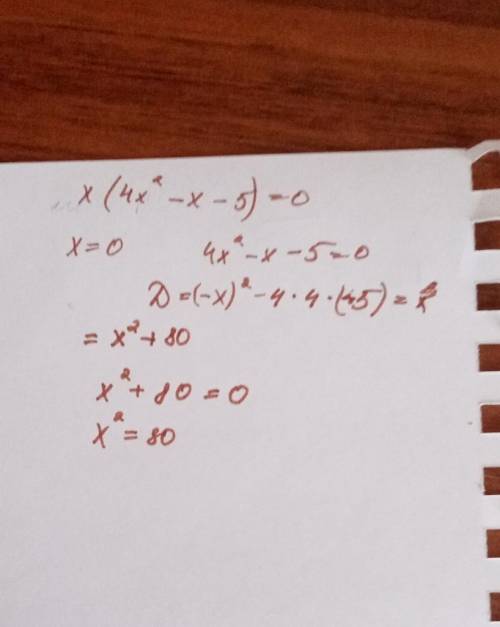 x(4x² - x - 5) = 0
x = 0 4x² - x - 5 = 0
D = (-x)² - 4 · 4 · (-5) =
= x² + 80
x² + 80 = 0
x² = 80